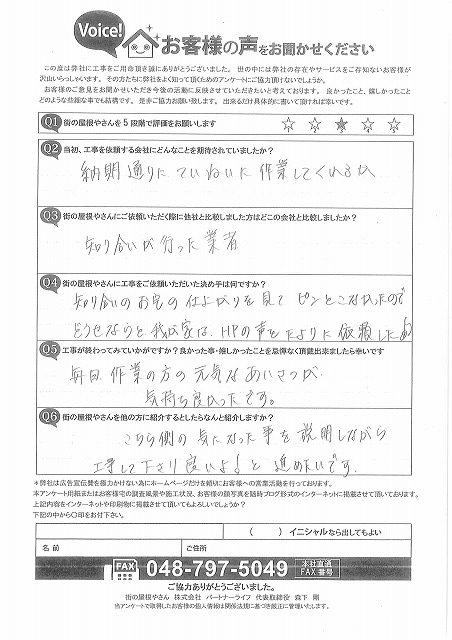 Voice!
お客様の声をお聞かせください
この度は弊社に工事をご用命頂き誠にありがとうございました。世の中には弊社の存在やサービスをご存知ないお客様が
沢山いらっしゃいます。その方たちに弊社をよく知って頂くためのアンケートにご協力頂けないでしょうか。
お客様のご意見をお聞かせいただき今後の活動に反映させていただきたいと考えております。良かったこと、嬉しかったこと
どのような些細な事でも結構です。是非ご協力お願い致します。出来るだけ具体的に書いて頂ければ幸いです。
Q1 街の屋根やさんを5段階で評価をお願いします ☆ ☆ ★ ☆ ☆
Q2 当初、工事を依頼する会社にどんなことを期待されていましたか?
納期通りにていねいに作業してくれるか
Q3 街の屋根やさんにご依頼いただく際に他社と比較しました方はどこの会社と比較しましたか?
知り合いが行った業者
Q4 街の屋根やさんに工事をご依頼いただいた決め手は何ですか?
知り合いのお宅の仕上がりを見てピンとこなかったので
どうせならと我が家は、HPの声をたよりに依頼した
Q5 工事が終わってみていかがですか?良かった事・嬉しかったことを忌憚なく頂戴出来ましたら幸いです
毎日、作業の方の元気なあいさつが、
気持ち良かったです。
Q6 街の屋根やさんを他の方に紹介するとしたらなんと紹介しますか?
こちら側の気になった事を説明しながら
工事して下さり良いよ!と進めたいです。
*弊社は広告宣伝費を極力かけない為にホームページだけを頼りにお客様への営業活動を行っております。
本アンケート用紙またはお客様宅の調査風景や施工状況、お客様の顔写真を随時ブログ形式のインターネットに掲載させて頂いております。
上記内容をインターネットや印刷物に掲載させて頂いてもよろしいでしょうか?
下記の中から〇印をお付下さい。
( )イニシャルなら出してもよい
名前 ご住所
FAX 048-797-5049 本社直通 FAX番号
ご協力ありがとうございました。
街の屋根やさん 株式会社 パートナーライフ 代表取締役 森下 剛
当アンケートで取得したお客様の個人情報は関係法規に基づき厳正に管理いたします。